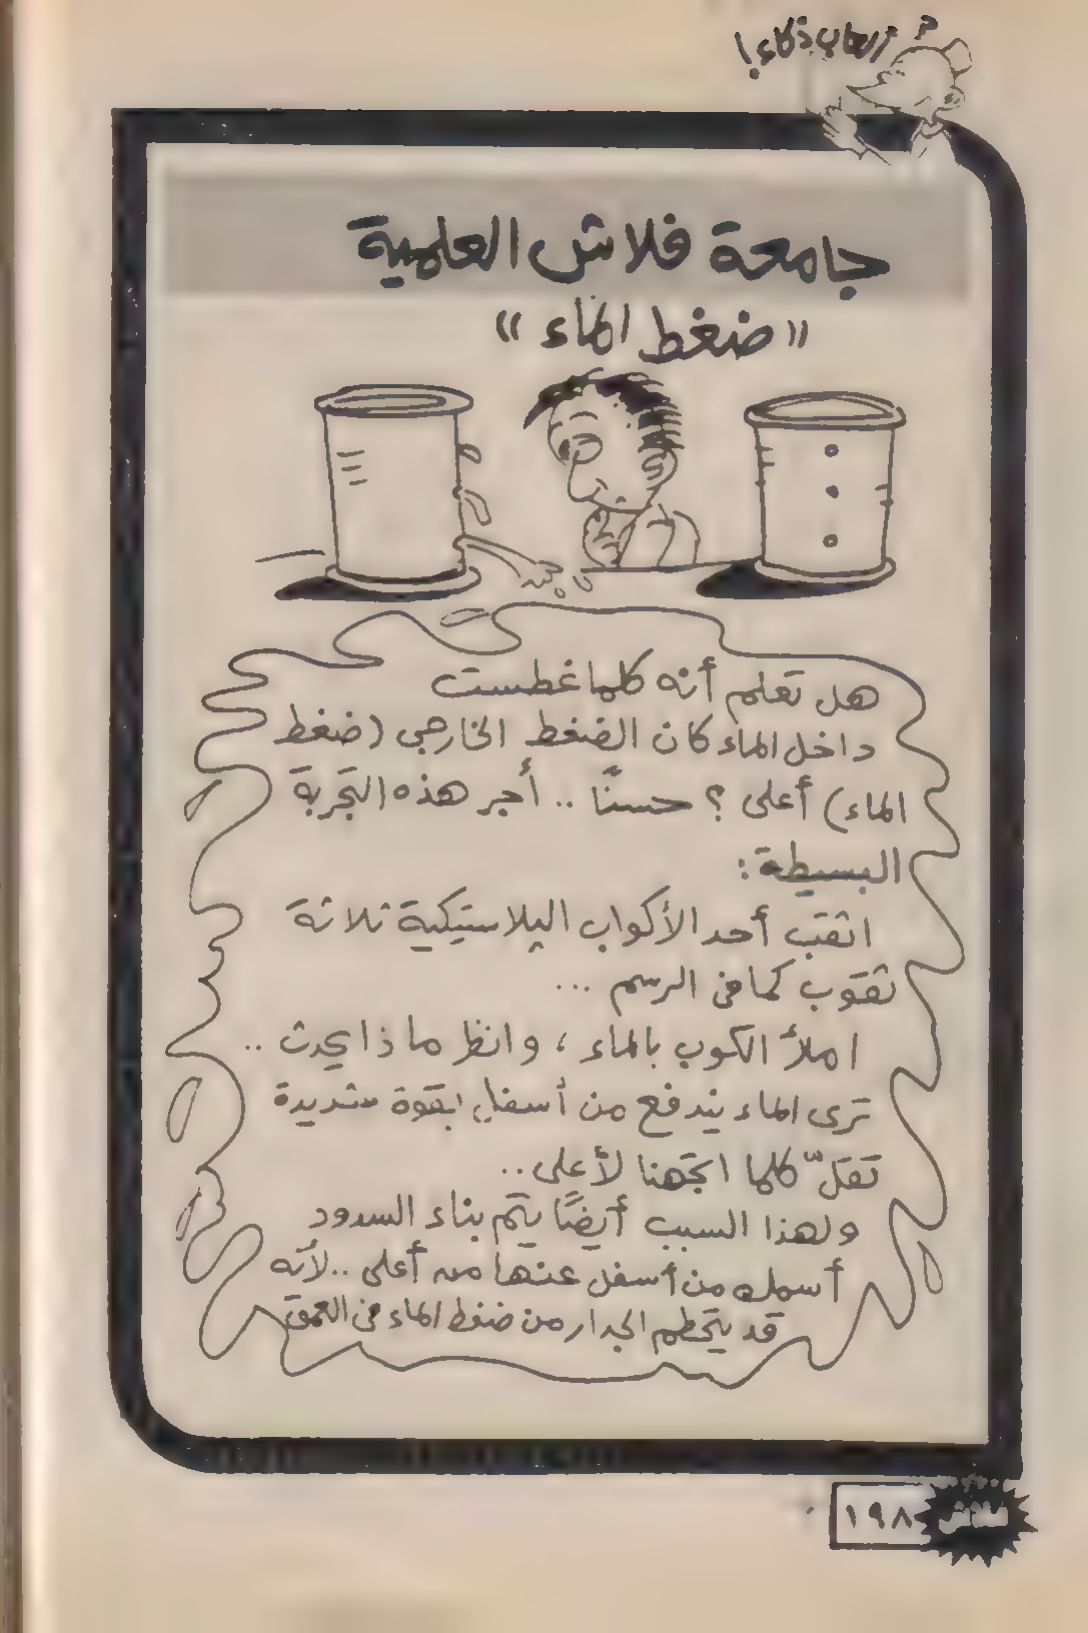 ألعاب ذكاء!
جامعة فلاش العلمية
«ضغط الماء»
هل تعلم أنه كلما غطست
داخل الماء كان الضغط الخارجي (ضغط
الماء) أعلى؟ حسنًا .. أجر هذه التجربة
البسيطة:
اثقب أحد الأكواب البلاستيكية ثلاثة
ثقوب كما في الرسم ...
املأ الكوب بالماء، وانظر ماذا يحدث ..
ترى الماء يندفع من أسفل بقوة شديدة
تقلّ كلما اتجهنا لأعلى ..
ولهذا السبب أيضًا يتم بناء السدود
أسمك من أسفل عنها من أعلى .. لأنه
قد يتحطم الجدار من ضغط الماء في العمق
فلاش
١٩٨